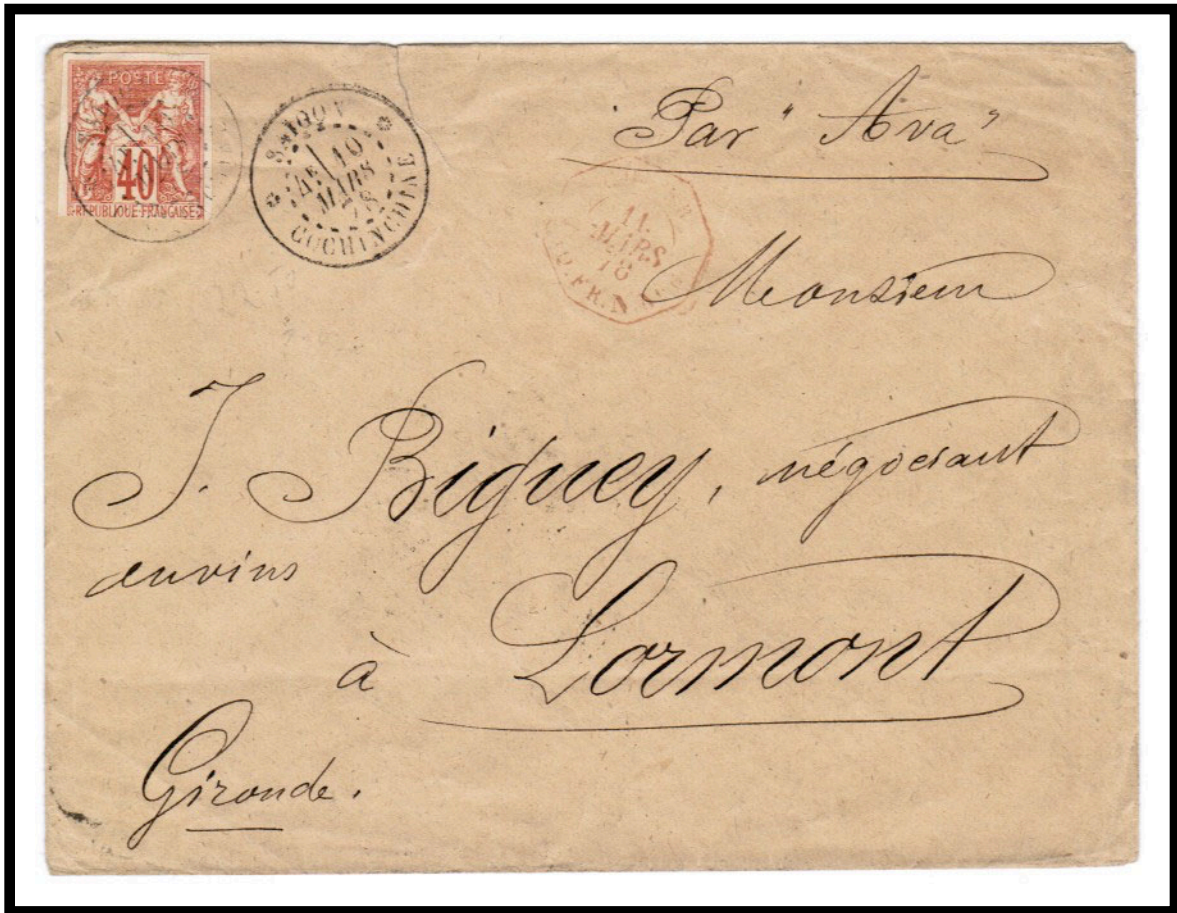 POSTE
40
REPUBLIQUE FRANÇAISE
SAIGON
10
MARS
78
COCHINCHINE
Par "Ava"
11
MARS
78
FR. N
Monsieur
J. Biguey, négociant
en vins
à Lormont
Gironde.